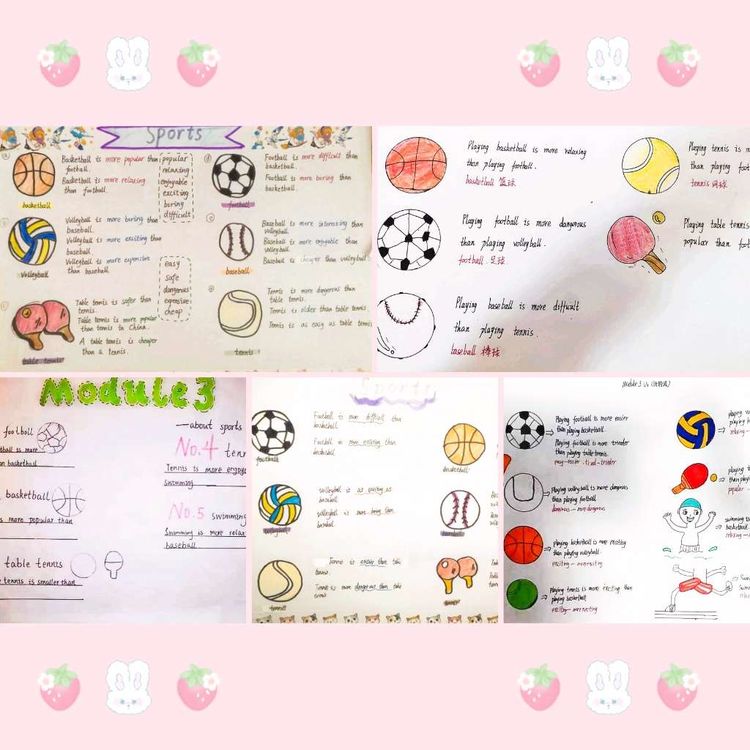 Sports
Basketball is more popular than
football.
Basketball is more relaxing
than football.
basketball
popular
relaxing
enjoyable
exciting
boring
difficult
Football is more difficult than
basketball.
Football is more boring than
basketball.
football
Volleyball is more boring than
baseball.
Volleyball is more exciting than
baseball.
Volleyball is more expensive
than baseball.
Volleyball
easy
safe
dangerous
expensive
cheap
Baseball is more interesting than
volleyball.
Baseball is more enjoyable than
volleyball.
Baseball is cheaper than volleyball.
baseball
Table tennis is safer than
tennis.
Table tennis is more popular
than tennis in China.
A table tennis is cheaper
than a tennis.
table tennis
Tennis is more dangerous than
table tennis.
Tennis is older than table tennis.
Tennis is as easy as table tennis
tennis
Playing basketball is more relaxing
than playing football.
basketball 篮球
Playing tennis is m
than playing foot
tennis 网球
Playing football is more dangerous
than playing volleyball.
football 足球
Playing table tennis
popular than foot
Playing baseball is more difficult
than playing tennis.
baseball 棒球
Module 3
—about sports
football
ball is more
an basketball
No.4 tenn
Tennis is more
swimming
basketball
s more popular than
No.5 swimming
Swimming is more relax
baseball
table tennis
e tennis is smaller than
Sports
Football is more difficult than
baseball.
Football is more exciting than
basketball.
football
basketball
volleyball is as exciting as
baseball
volleyball is more boring than
baseball.
volleyball
baseball
Tennis is easier than table
tennis.
Tennis is more dangerous than table
tennis
tennis
Module 3
Playing football is more easier
than playing basketball.
Playing football is more
than playing table tennis.
playing v
playing b
Playing volleyball is more dangerous
than playing football
dangerous — more dangerous
playing t
than play
popular —
playing basketball is more exciting
than playing volleyball
exciting — more exciting
swimming is
basketball
playing tennis is more exciting than
playing basketball.
exciting — more exciting